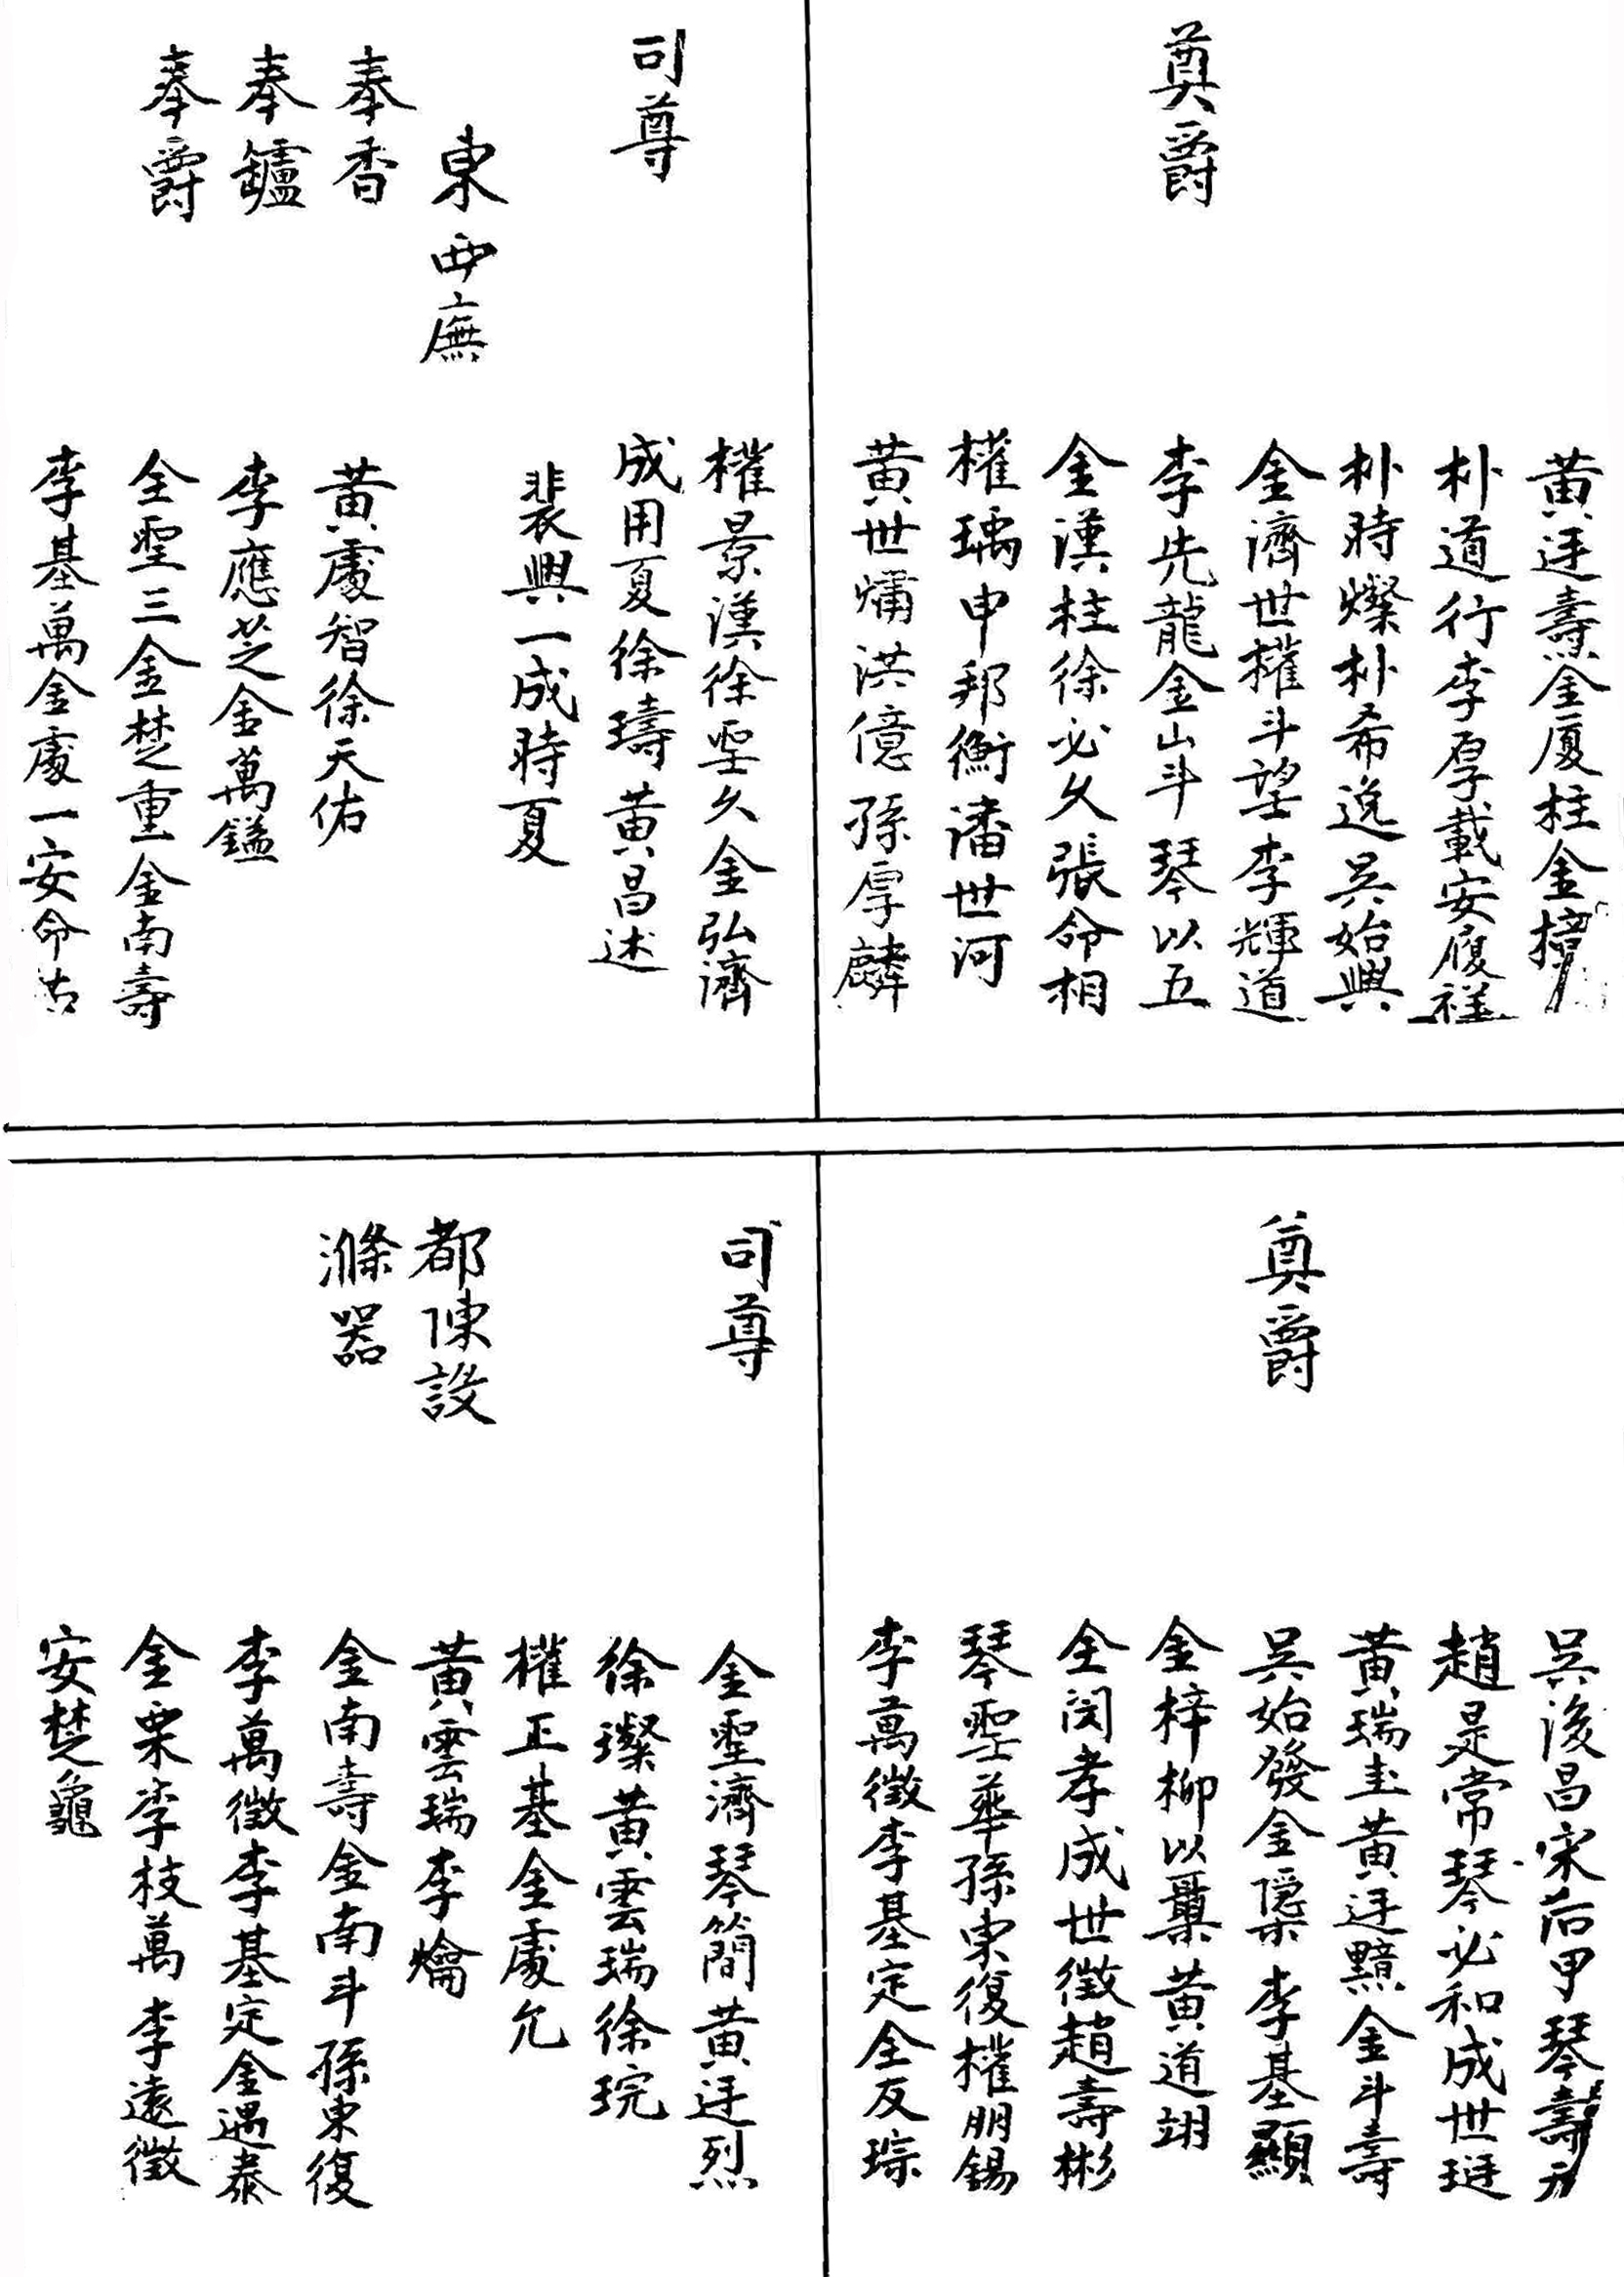 奠爵
黄廷壽金厦柱金
朴道行李厚載安履祥
朴時燦朴希逸吳始興
金濟世權斗望李輝道
李先龍金山斗琴以五
金漢柱徐必久張命相
權瑀申邦衡潘世河
黄世㷒洪億孫厚麟
權景漢徐聖久金弘濟
司尊
成用夏徐璹黄昌述
裴興一成時夏
東西廡
奉香
黄處智徐天佑
奉鑪
李應芝金萬鎰
奉爵
全聖三金楚重金南壽
李基萬金處一安命
奠爵
吳後昌宋后甲琴壽
趙是常琴必和成世珽
黄瑞圭黄廷黯金斗壽
吳始發金隱渠李基顯
金梓柳以㬥黄道翊
全閔孝成世徵趙壽彬
琴聖華孫東復權朋錫
李萬徵李基定全友琮
司尊
金聖濟琴簡黄廷烈
徐璨黄雲瑞徐琓
權正基金處允
都陳設
黄雲瑞李爚
滌器
金南壽金南斗孫東復
李萬徵李基定金遇泰
金栗李枝萬李遠徵
安楚龜